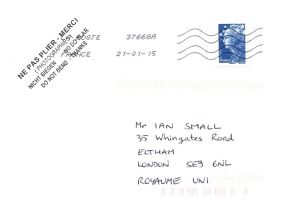 NE PAS PLIER - MERCI
( PHOTOGRAPHIES )
NICHT BIEGEN
DO NOT BEND THANKS
POSTE 37668A
21-01-15
Mr IAN SMALL
35 Whingates Road
ELTHAM
LONDON SE9 6NL
ROYAUME UNI